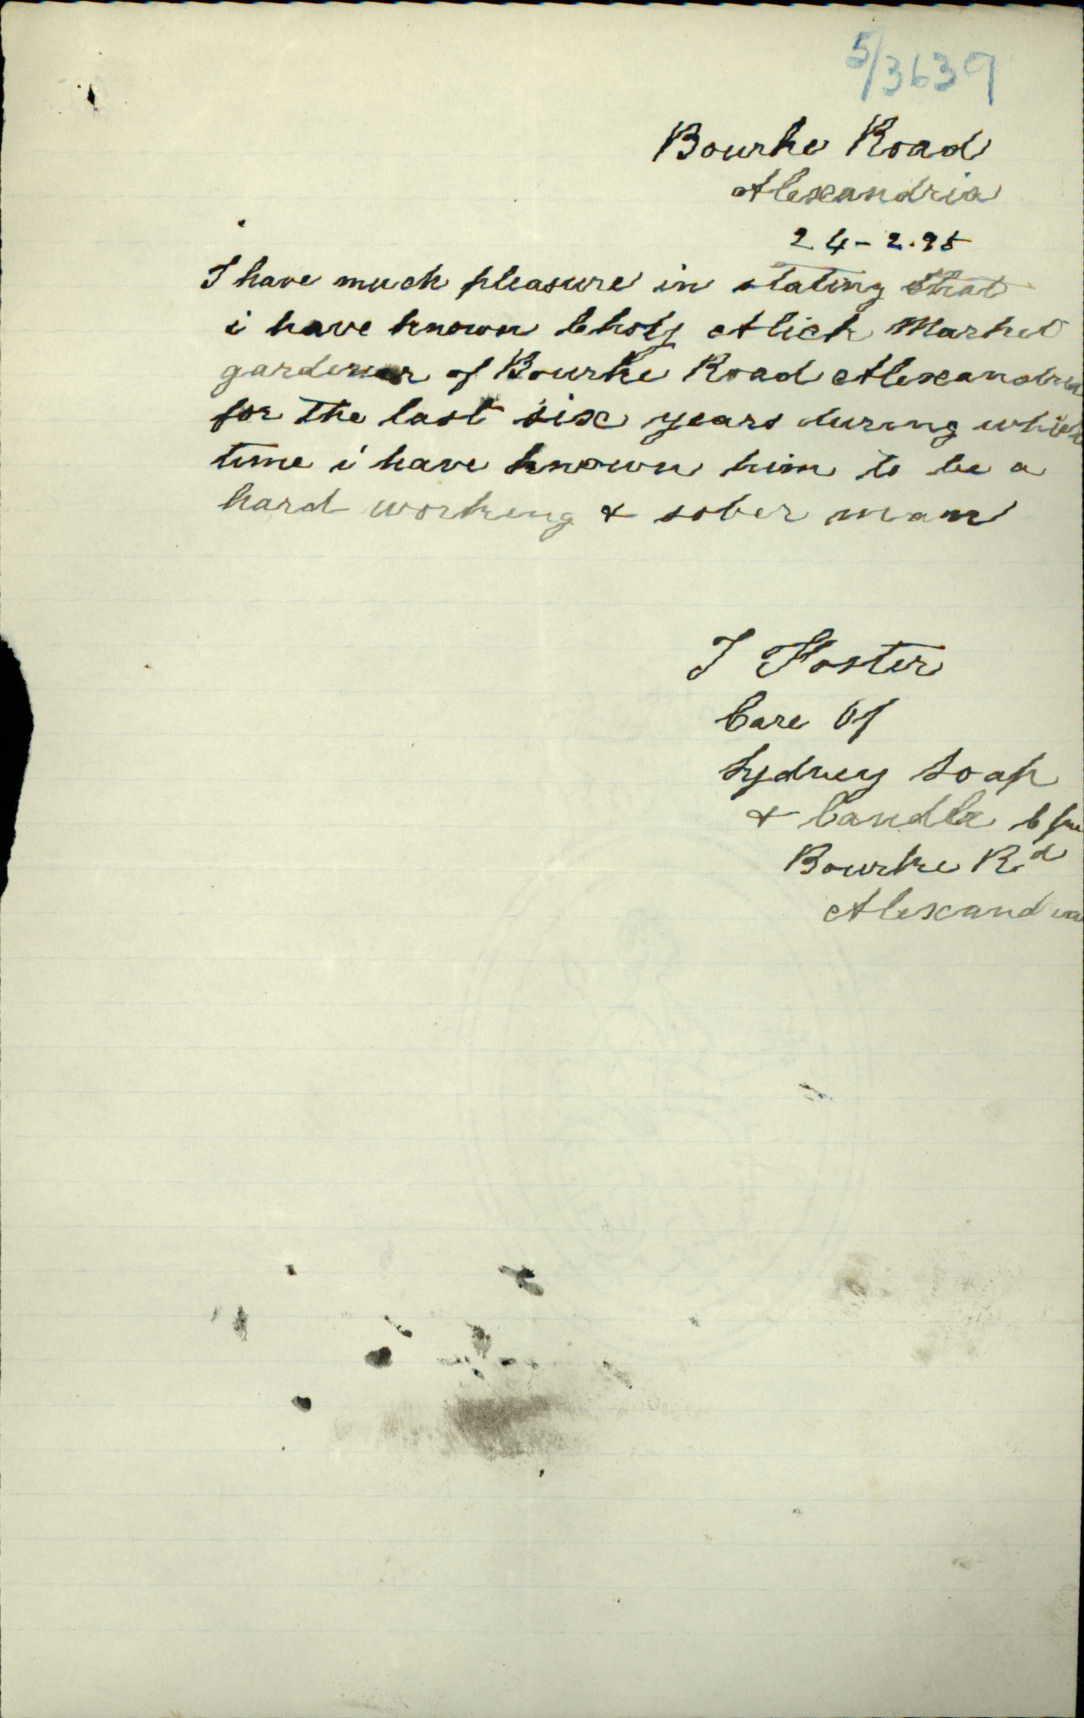 5/3639
Bourke Road
Alexandria
24-2.95
I have much pleasure in stating that
i have known Alick Market
gardener of Bourke Road Alexandria
for the last six years during which
time i have known him to be a
hard working & sober man
T Foster
Care Of
Sydney Soap
& Candle
Bourke Rd
Alexandria